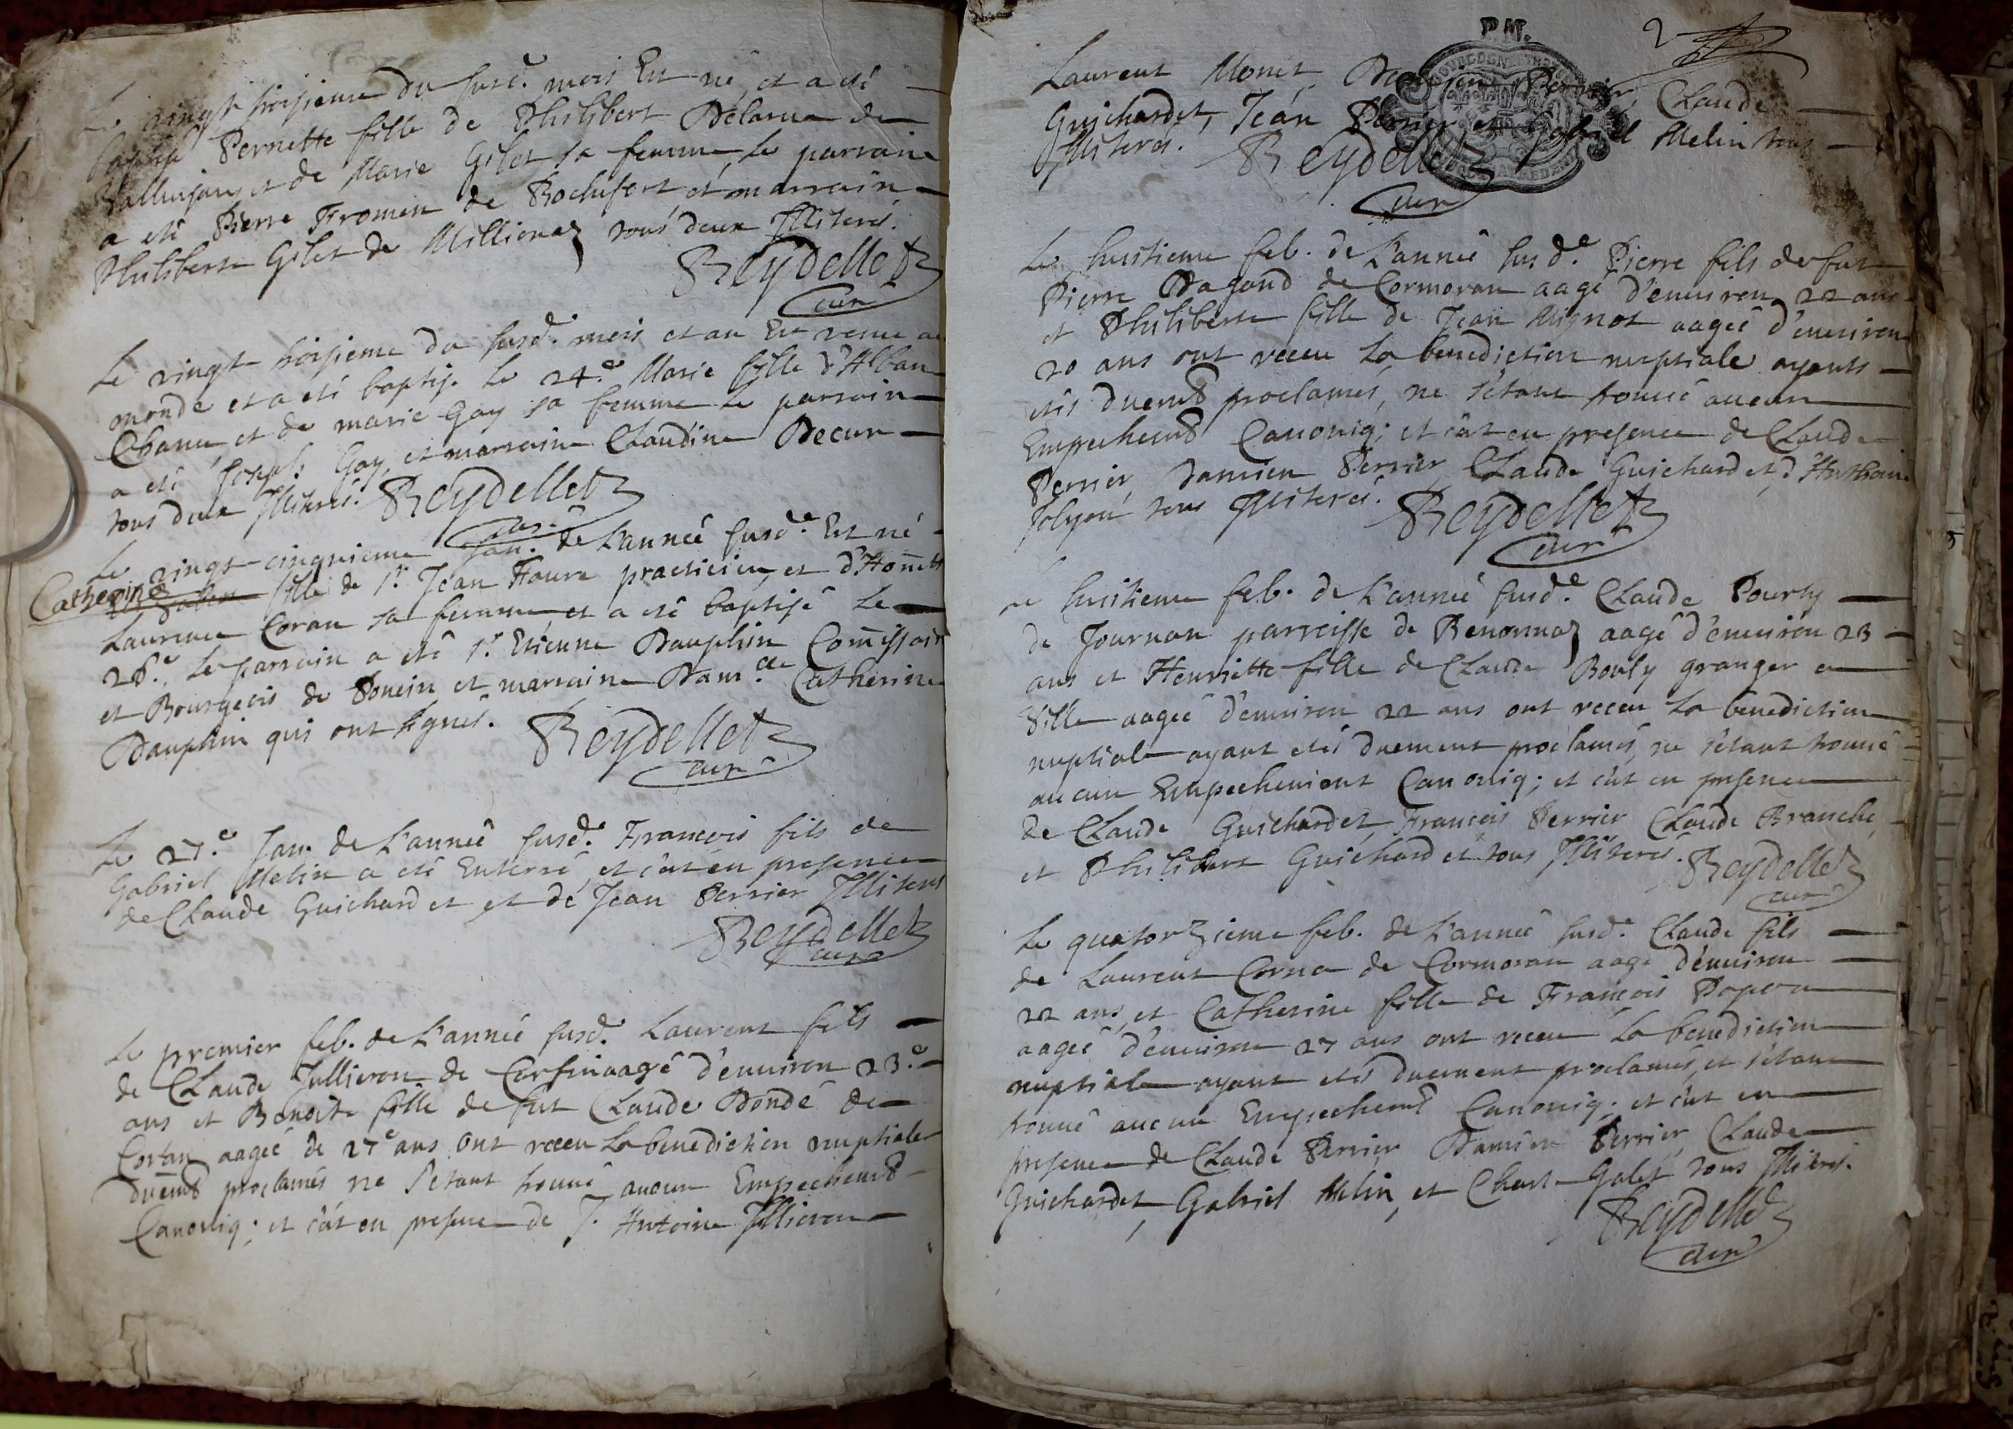 Le vingt troisieme du susd. mois Est né, et a eté
baptisé Pernette fille de Philibert Delarue de
et de Marie Gilet sa femme, le parrain
a eté Pierre Fromen de Rochefort et marrain
Philiberte Gilet de Millionaz tous deux Illiterés.
Reydellet
curé
Le vingt troisieme du susd. mois et an Est venue au
monde et a eté baptisé le 24.e Marie fille d'Alban
Chanu, et de marie Gay sa femme le parrain
a eté Joseph Gay, et marraine Claudine Decur
tous deux Illiterés. Reydellet
curé
Le vingt-cinquieme Jan. de L'année susd.e Est né
Catherine fille de Sr. Jean Faure practicien, et d'Honnête
Laurence Coran sa femme, et a eté baptisé le
28.e, Le parrain a eté Sr. Etienne Dauphin Comissaire
et Bourgeois de Poncin et marraine Dam.elle Catherine
Dauphin qui ont signés. Reydellet
curé
Le 27.e Jan. de L'année susd.e Francois fils de
Gabriel Melin a eté Enterré, et c'at en presence
de Claude Guichardet et de Jean Perrier Illiterés
Reydellet
curé
Le premier feb. de L'année susd.e Laurent fils
de Claude Jullieron de aagé d'environ 23.e
ans et Benoite fille de fut Claude Dondé de
aageé de 27.e ans Ont receu La benediction nuptiale
duem.t proclamés ne s'etant trouvé aucun Empechem.t
Canoniq; et c'at en presence de Sr. Antoine
2
Laurent Monet, Perrier, Claude
Guichardet, Jean Perrier et Gabriel Melin tous
Illiterés. Reydellet
curé
Le huitieme feb. de L'année susd.e Pierre fils de fut
Pierre Dagand de Cormoran aagé d'environ 22 ans
et Philiberte fille de Jean Mignot aageé d'environ
20 ans ont receu La benediction nuptiale ayants
etés duem.t proclamés, ne s'etant trouvé aucun
Empechem.t Canoniq; et c'at en presence de Claude
Perrier, Damien Perrier, Claude Guichardet, d'Anthoine
Jolyon tous Illiterés. Reydellet
curé
Le huitieme feb. de L'année susd.e Claude Pourly
de Journan parroisse de Benonnaz aagé d'environ 23
ans et Henriette fille de Claude Bouly granger a
Ville aageé d'environ 22 ans ont receu La benediction
nuptiale ayant etés duement proclamés, ne s'etant trouvé
aucun Empechement Canoniq; et c'at en presence
de Claude Guichardet, Francois Perrier, Claude Branche,
et Philibert Guichardet tous Illiterés. Reydellet
curé
Le quatorzieme feb. de L'année susd.e Claude fils
de Laurent Corna de Cormoran aagé d'environ
22 ans et Catherine fille de Francois
aageé d'environ 27 ans ont receu La benediction
nuptiale ayant etés duement proclamés, et s'etant
trouvé aucun Empechem.t Canoniq; et c'at en
presence de Claude Perrier Damien Perrier, Claude
Guichardet, Gabriel Melin, et Charle Galet tous Illiterés.
Reydellet
curé